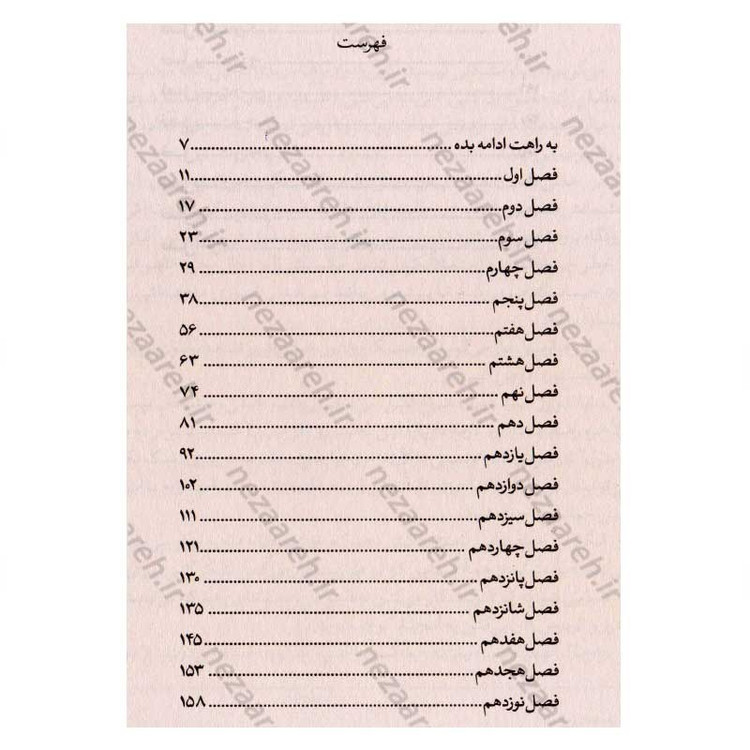 فهرست
به راهت ادامه بده ........ ۷
فصل اول ........ ۱۱
فصل دوم ........ ۱۷
فصل سوم ........ ۲۳
فصل چهارم ........ ۲۹
فصل پنجم ........ ۳۸
فصل هفتم ........ ۵۶
فصل هشتم ........ ۶۳
فصل نهم ........ ۷۴
فصل دهم ........ ۸۱
فصل یازدهم ........ ۹۲
فصل دوازدهم ........ ۱۰۲
فصل سیزدهم ........ ۱۱۱
فصل چهاردهم ........ ۱۲۱
فصل پانزدهم ........ ۱۳۰
فصل شانزدهم ........ ۱۳۵
فصل هفدهم ........ ۱۴۵
فصل هجدهم ........ ۱۵۳
فصل نوزدهم ........ ۱۵۸
nezaareh.ir